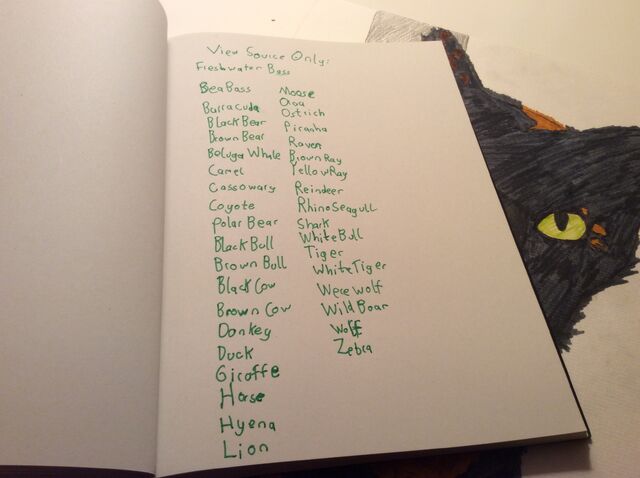 View Source Only:
Freshwater Bass
Sea Bass
Barracuda
Black Bear
Brown Bear
Beluga Whale
Camel
Cassowary
Coyote
Polar Bear
Black Bull
Brown Bull
Black Cow
Brown Cow
Donkey
Duck
Giraffe
Horse
Hyena
Lion
Moose
Orca
Ostrich
Piranha
Raven
Brown Ray
Yellow Ray
Reindeer
Rhino Seagull
Shark
White Bull
Tiger
White Tiger
Werewolf
Wild Boar
Wolf
Zebra